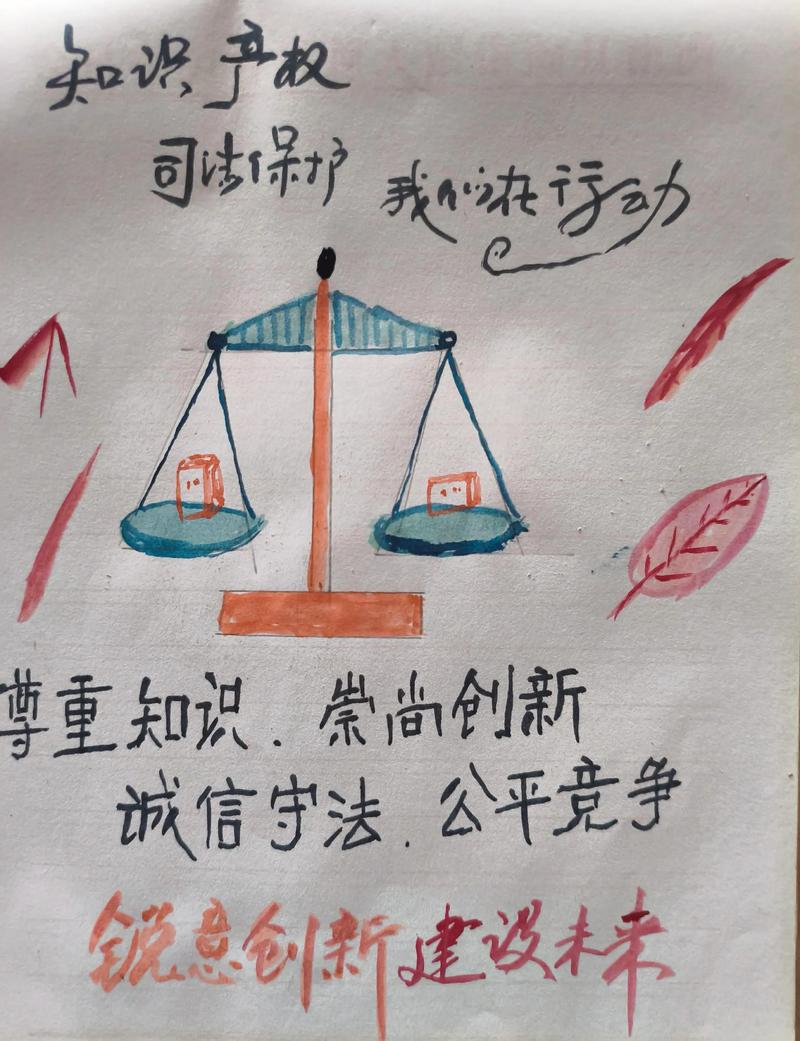 知识产权
司法保护
我们在行动
尊重知识.崇尚创新
诚信守法.公平竞争
锐意创新建设未来